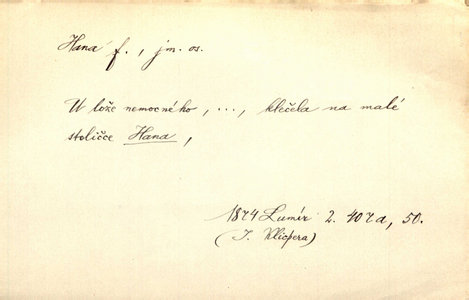 Hana f., jm. os.
U lože nemocného, ..., klečela na malé
stoličce Hana,
1874 Lumír 2. 407a, 50.
(I. Klicpera)